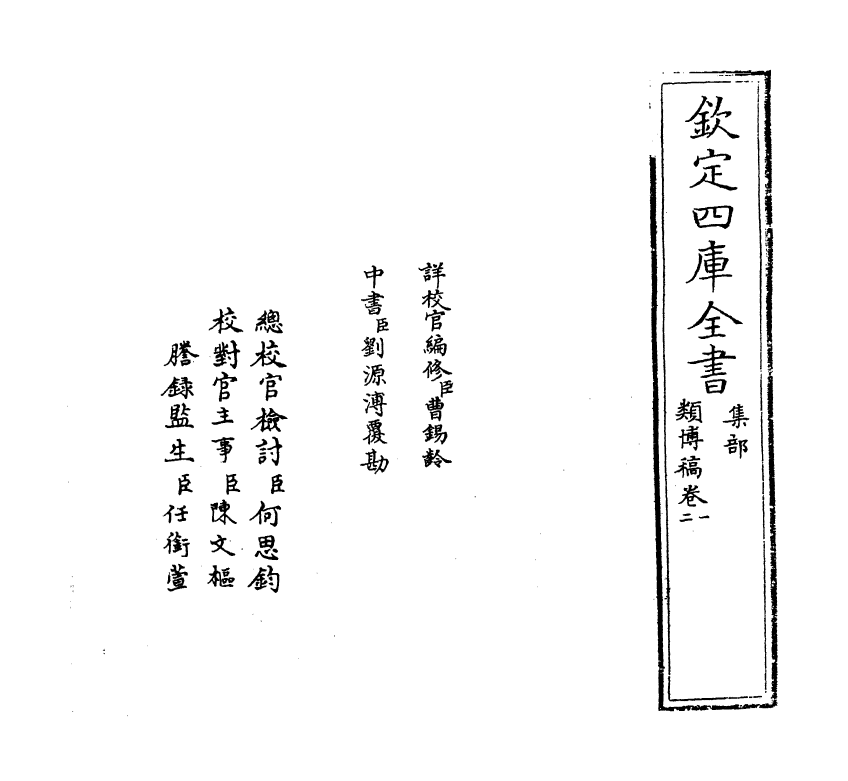 欽定四庫全書
集部
類博稿卷一二
詳校官編修臣曹錫齡
中書臣劉源溥覆勘
總校官檢討臣何思鈞
校對官主事臣陳文樞
謄錄監生臣任銜蕙